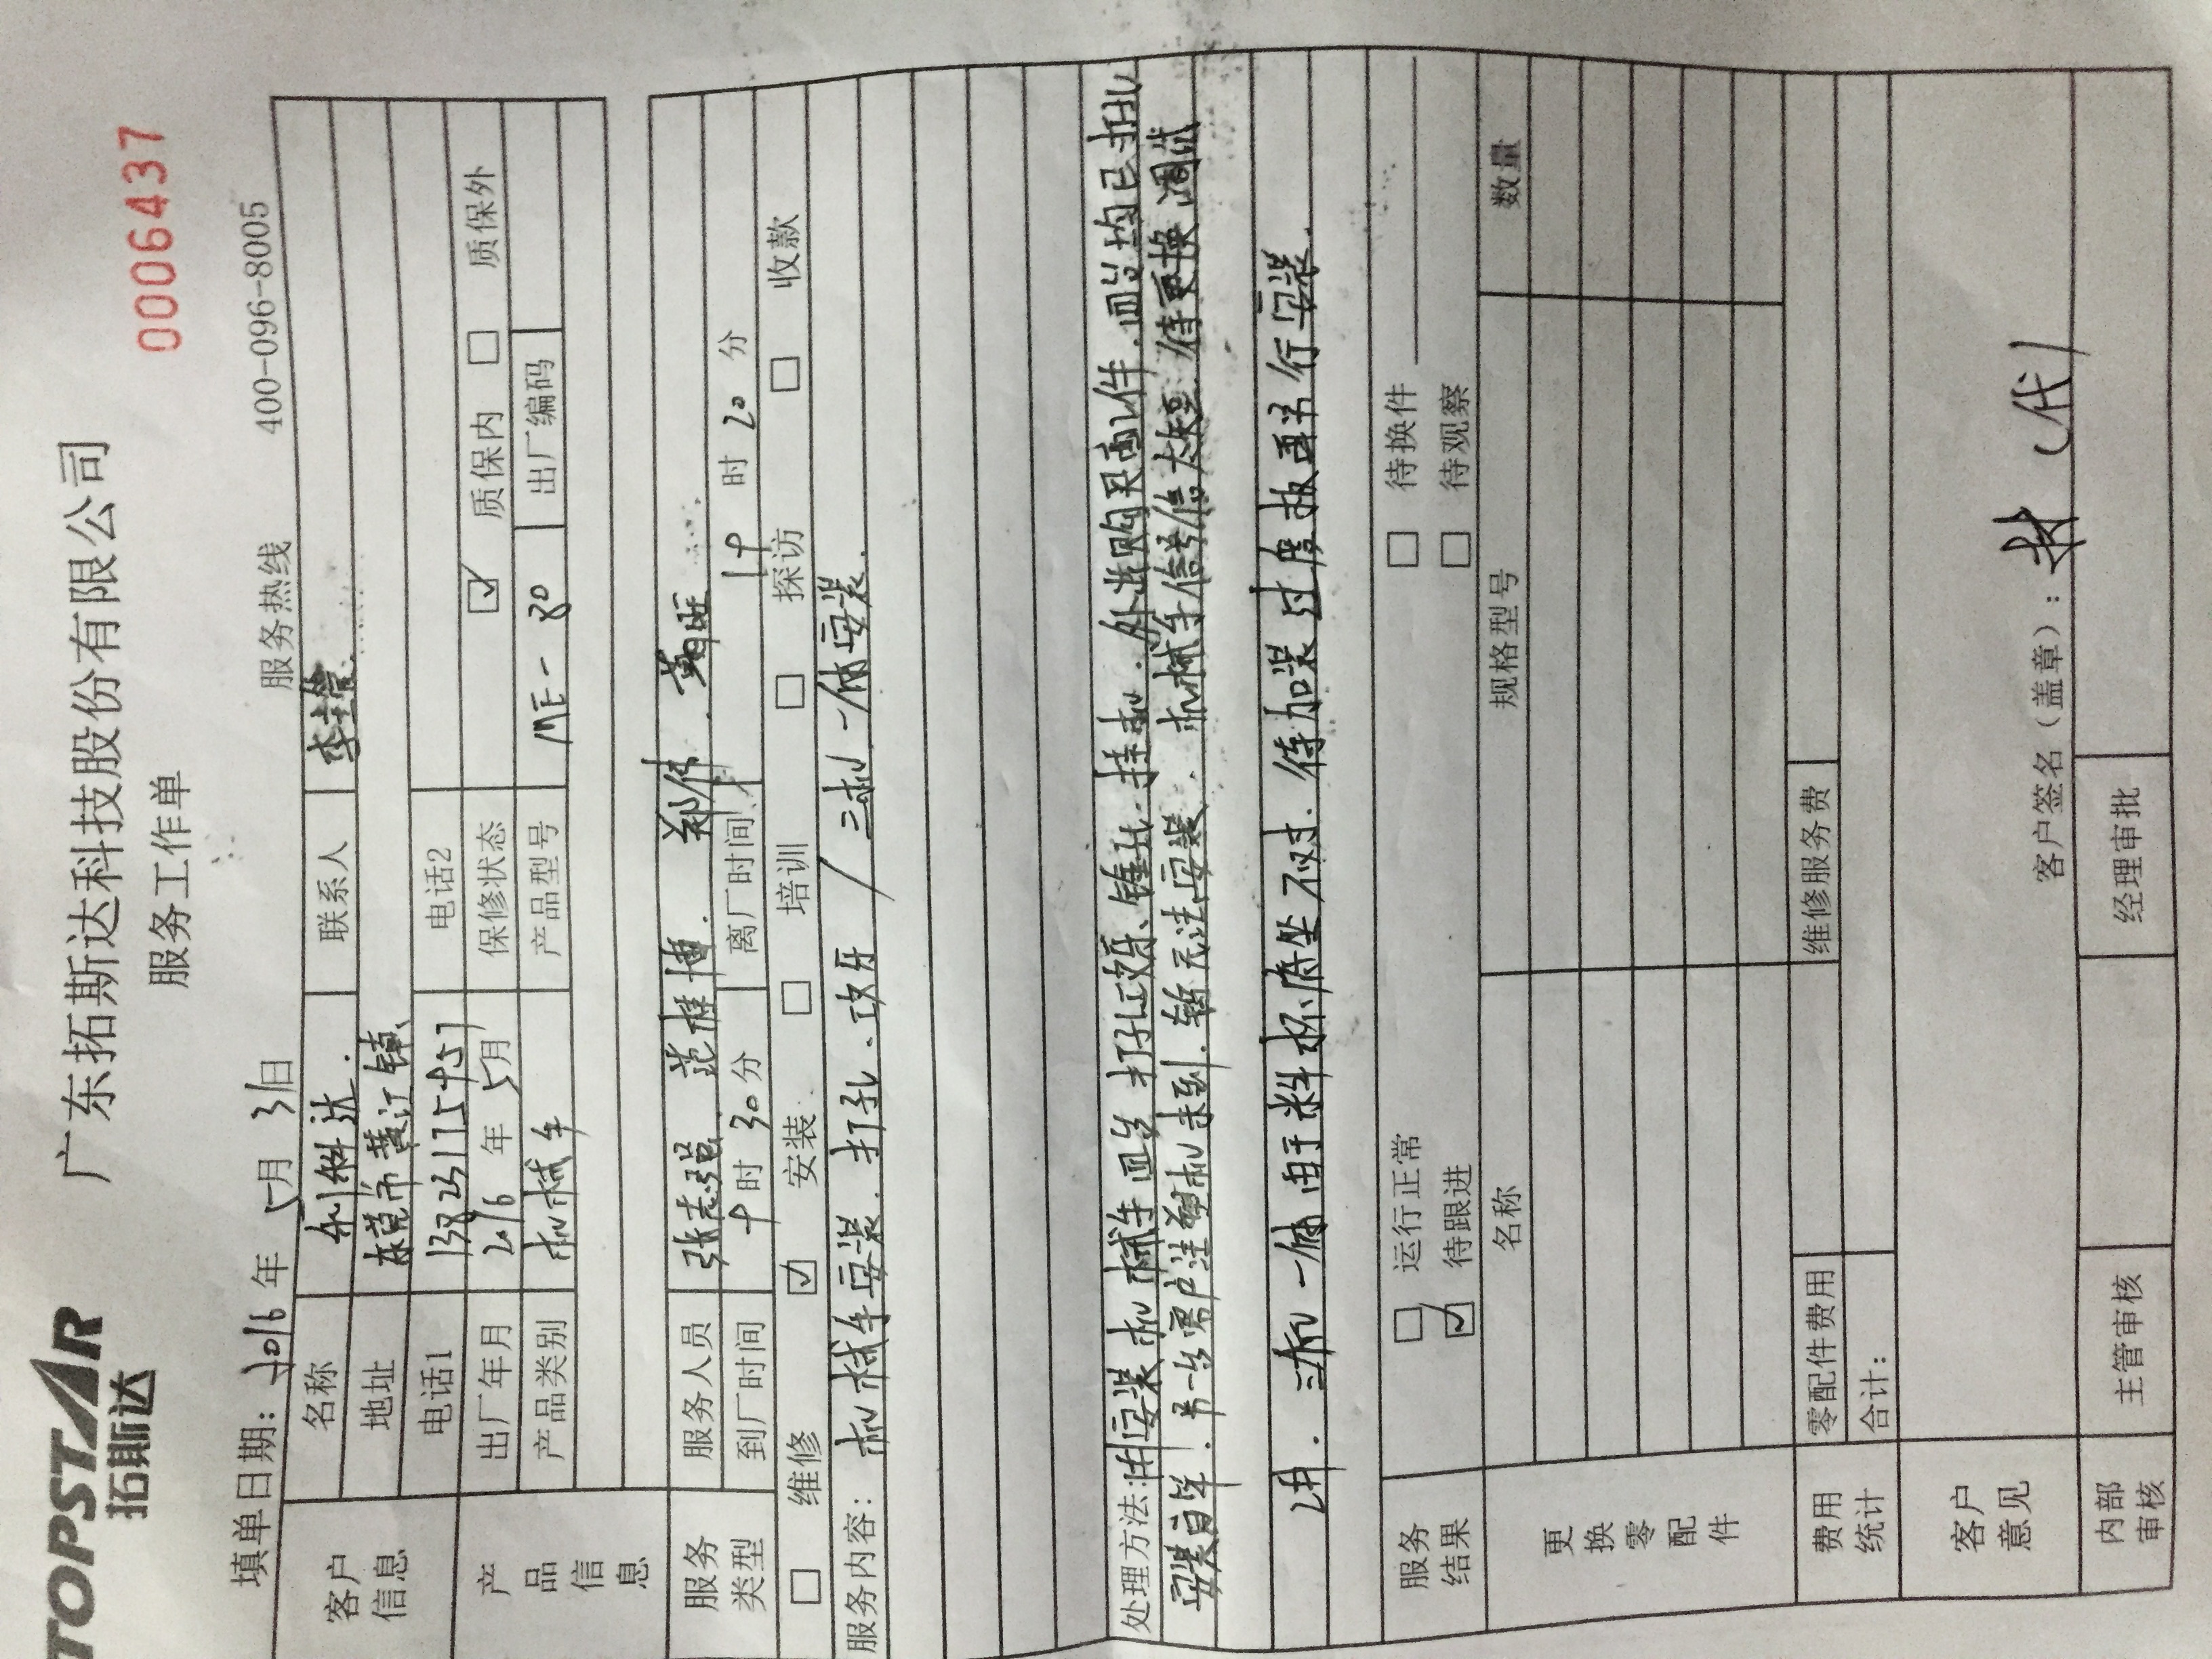 TOPSTAR
拓斯达
广东拓斯达科技股份有限公司
0006437
服务工作单
填单日期: 2016 年 5 月 31 日
服务热线 400-096-8005
客户信息
名称 联系人
地址 东莞市黄江镇
电话1 电话2
产品信息
出厂年月 2016 年 5 月 保修状态 ☑ 质保内 □ 质保外
产品类别 机械手 产品型号 ME-80 出厂编码
服务类型
服务人员 张志强 范桂博. 郑伟.
到厂时间 9 时 30 分 离厂时间 19 时 20 分
□ 维修 ☑ 安装 □ 培训 □ 探访 □ 收款
服务内容: 机械手安装.打孔、攻牙 / 三机一体安装.
处理方法: 安装机械手四台 打孔攻牙、 四台均已
安装自华.另一台客户注塑机未到.暂无法安装. 机械手信号 待更换调试
三机一体由于料杯底坐不对.待加装过度板再另行安装.
服务结果
□ 运行正常 □ 待换件
☑ 待跟进 □ 待观察
更换零配件
名称 规格型号 数量
费用统计
零配件费用 维修服务费
合计:
客户意见
客户签名（盖章）: (代)
内部审核
主管审核 经理审批